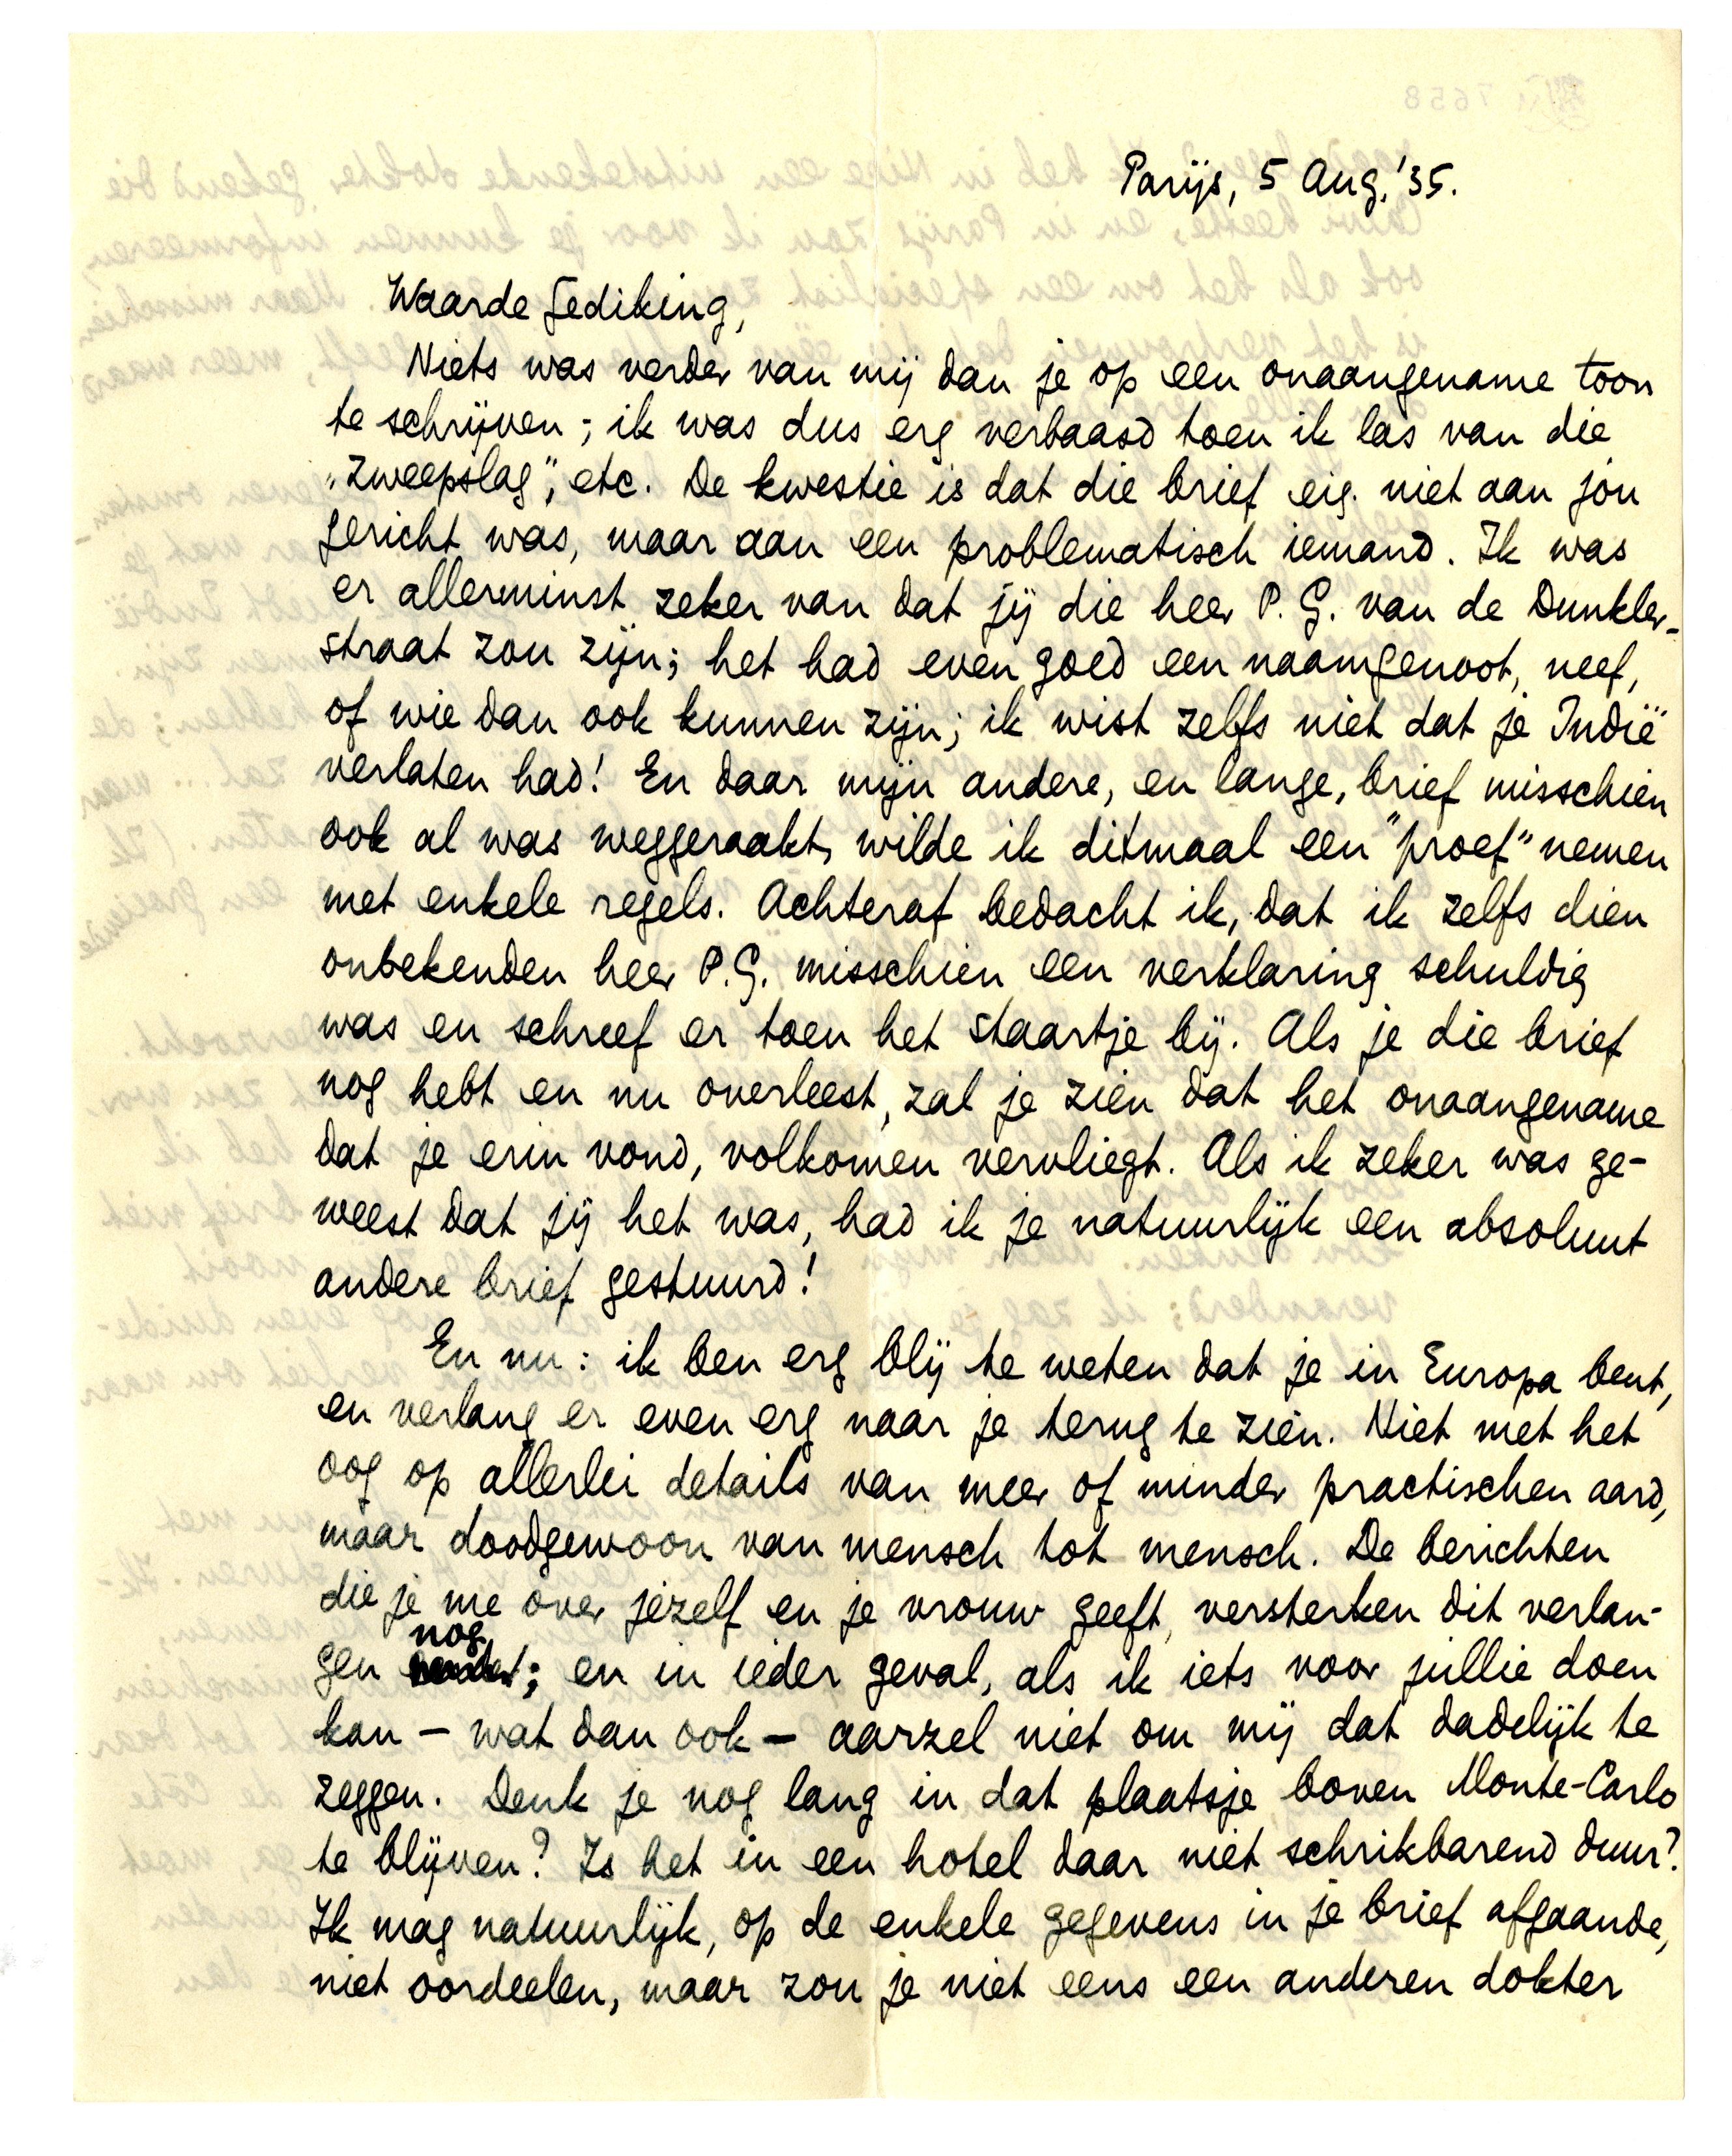 Parijs, 5 Aug. '35.
Waarde Gediking,
Niets was verder van mij dan je op een onaangename toon
te schrijven; ik was dus erg verbaasd toen ik las van die
„zweepslag", etc. De kwestie is dat die brief eig. niet aan jou
gericht was, maar aan een problematisch iemand. Ik was
er allerminst zeker van dat jij die heer P.G. van de Dunkler-
straat zou zijn; het had even goed een naamgenoot, neef,
of wie dan ook kunnen zijn; ik wist zelfs niet dat je Indië
verlaten had! En daar mijn andere, en lange, brief misschien
ook al was weggeraakt, wilde ik ditmaal een "proef" nemen
met enkele regels. Achteraf bedacht ik, dat ik zelfs dien
onbekenden heer P.G. misschien een verklaring schuldig
was en schreef er toen het staartje bij. Als je die brief
nog hebt en nu overleest, zal je zien dat het onaangename
dat je erin vond, volkomen vervliegt. Als ik zeker was ge-
weest dat jij het was, had ik je natuurlijk een absoluut
andere brief gestuurd!
En nu: ik ben erg blij te weten dat je in Europa bent,
en verlang er even erg naar je terug te zien. Niet met het
oog op allerlei details van meer of minder practischen aard,
maar doodgewoon van mensch tot mensch. De berichten
die je me over jezelf en je vrouw geeft, versterken dit verlan-
gen nog; en in ieder geval, als ik iets voor jullie doen
kan – wat dan ook – aarzel niet om mij dat dadelijk te
zeggen. Denk je nog lang in dat plaatsje boven Monte-Carlo
te blijven? Is het in een hotel daar niet schrikbarend duur?
Ik mag natuurlijk, op de enkele gegevens in je brief afgaande,
niet oordeelen, maar zou je niet eens een anderen dokter